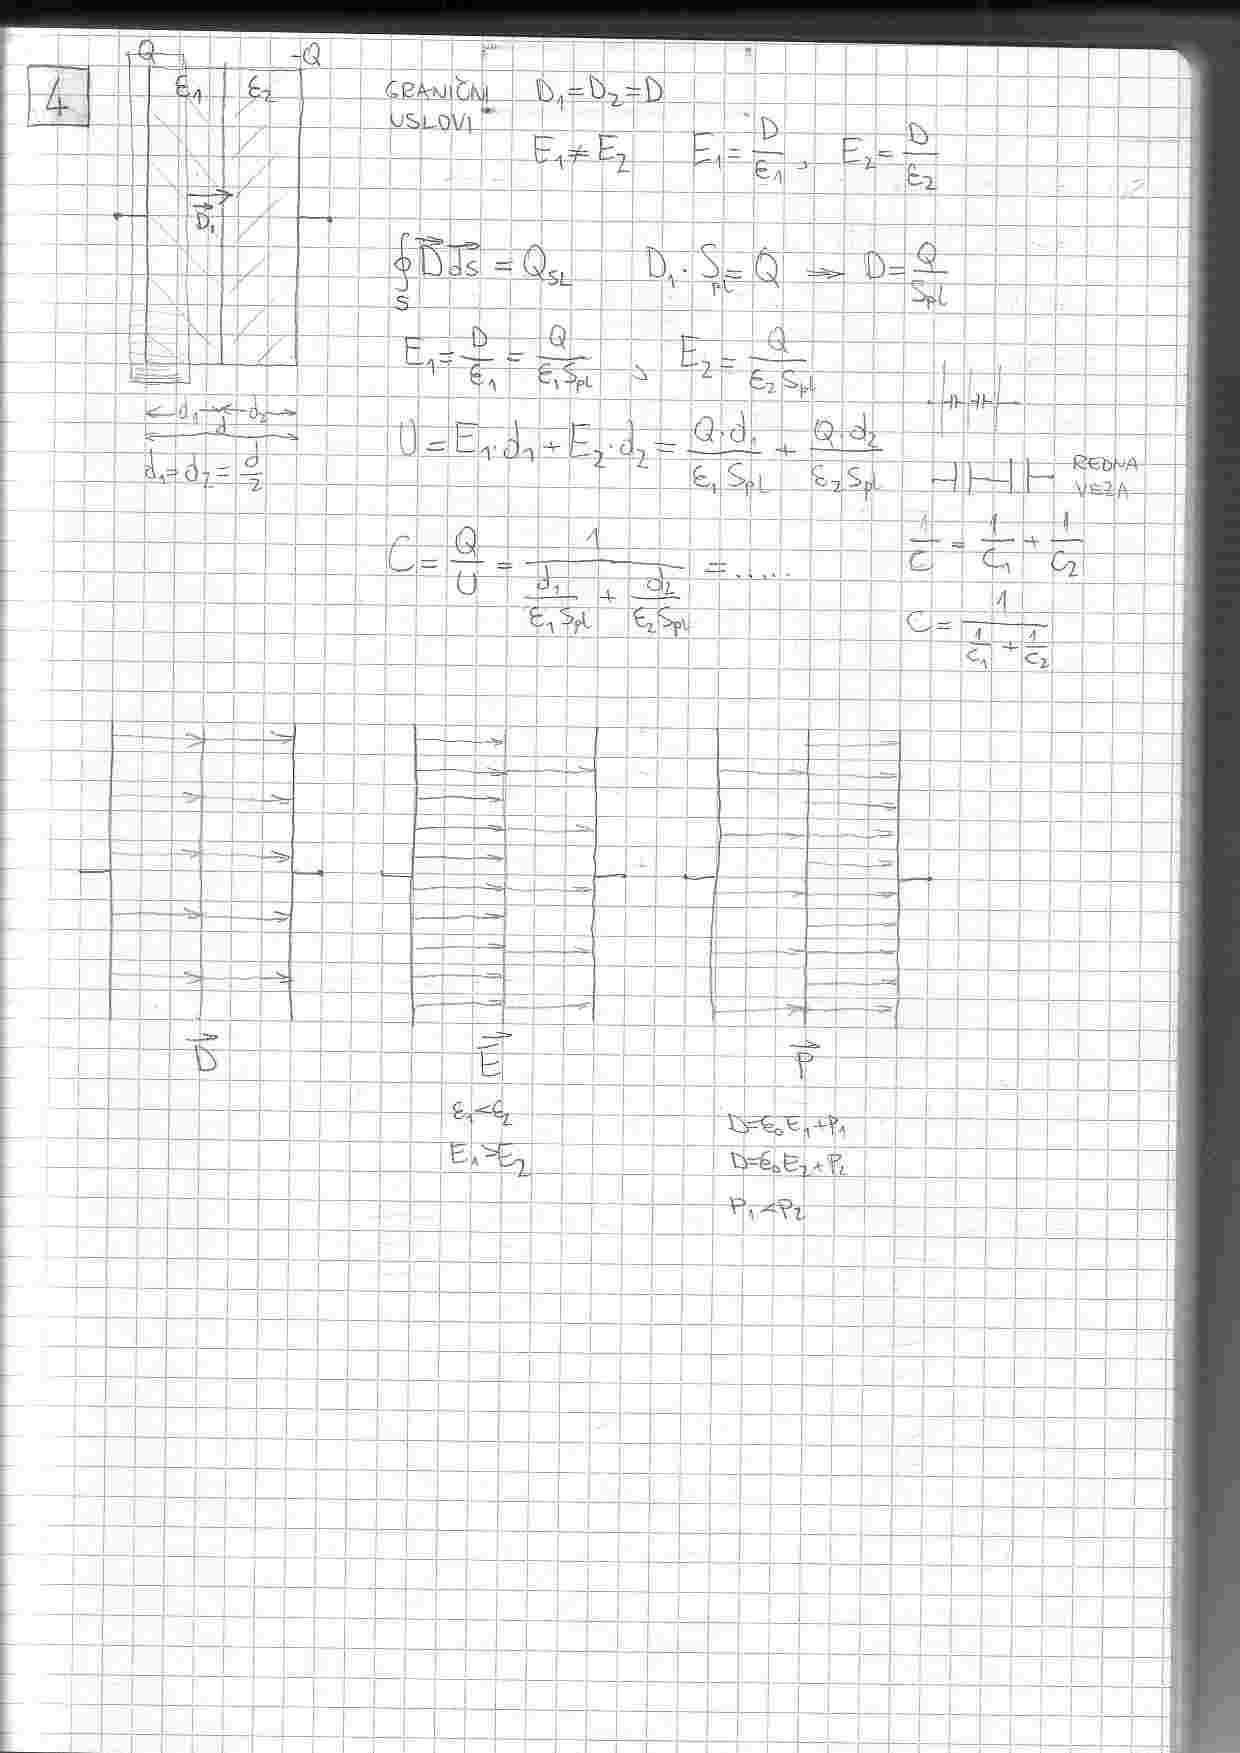 4
Q -Q
ε₁ ε₂
D⃗₁
d₁ d₂
d
d₁=d₂=d/2
GRANIČNI USLOVI D₁=D₂=D
E₁≠E₂ E₁=D/ε₁, E₂=D/ε₂
∮_S D⃗ d⃗s = Q_SL D₁·S_pl=Q ⇒ D=Q/S_pl
E₁=D/ε₁=Q/(ε₁S_pl), E₂=Q/(ε₂S_pl)
U=E₁·d₁+E₂·d₂=(Q·d₁)/(ε₁S_pl)+(Q·d₂)/(ε₂S_pl)
REDNA
VEZA
C=Q/U=1/(d₁/(ε₁S_pl)+d₂/(ε₂S_pl))=.....
1/C=1/C₁+1/C₂
C=1/(1/C₁+1/C₂)
D⃗ E⃗ P⃗
ε₁<ε₂
E₁>E₂
D=ε₀E₁+P₁
D=ε₀E₂+P₂
P₁<P₂